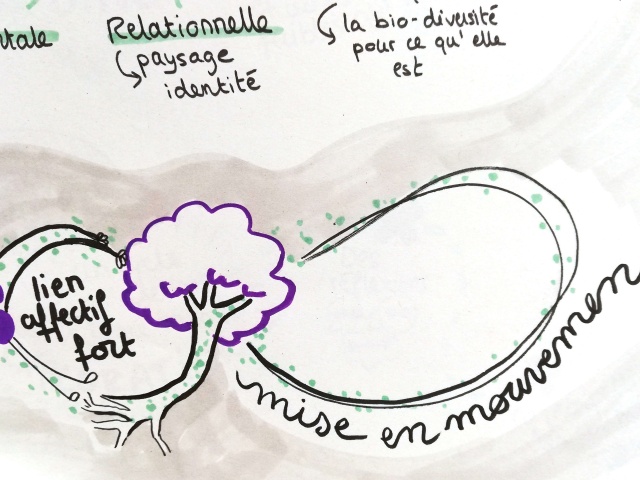 Relationnelle
paysage
identité
la bio-diversité
pour ce qu'elle
est
lien
affectif
fort
mise en mouvemen